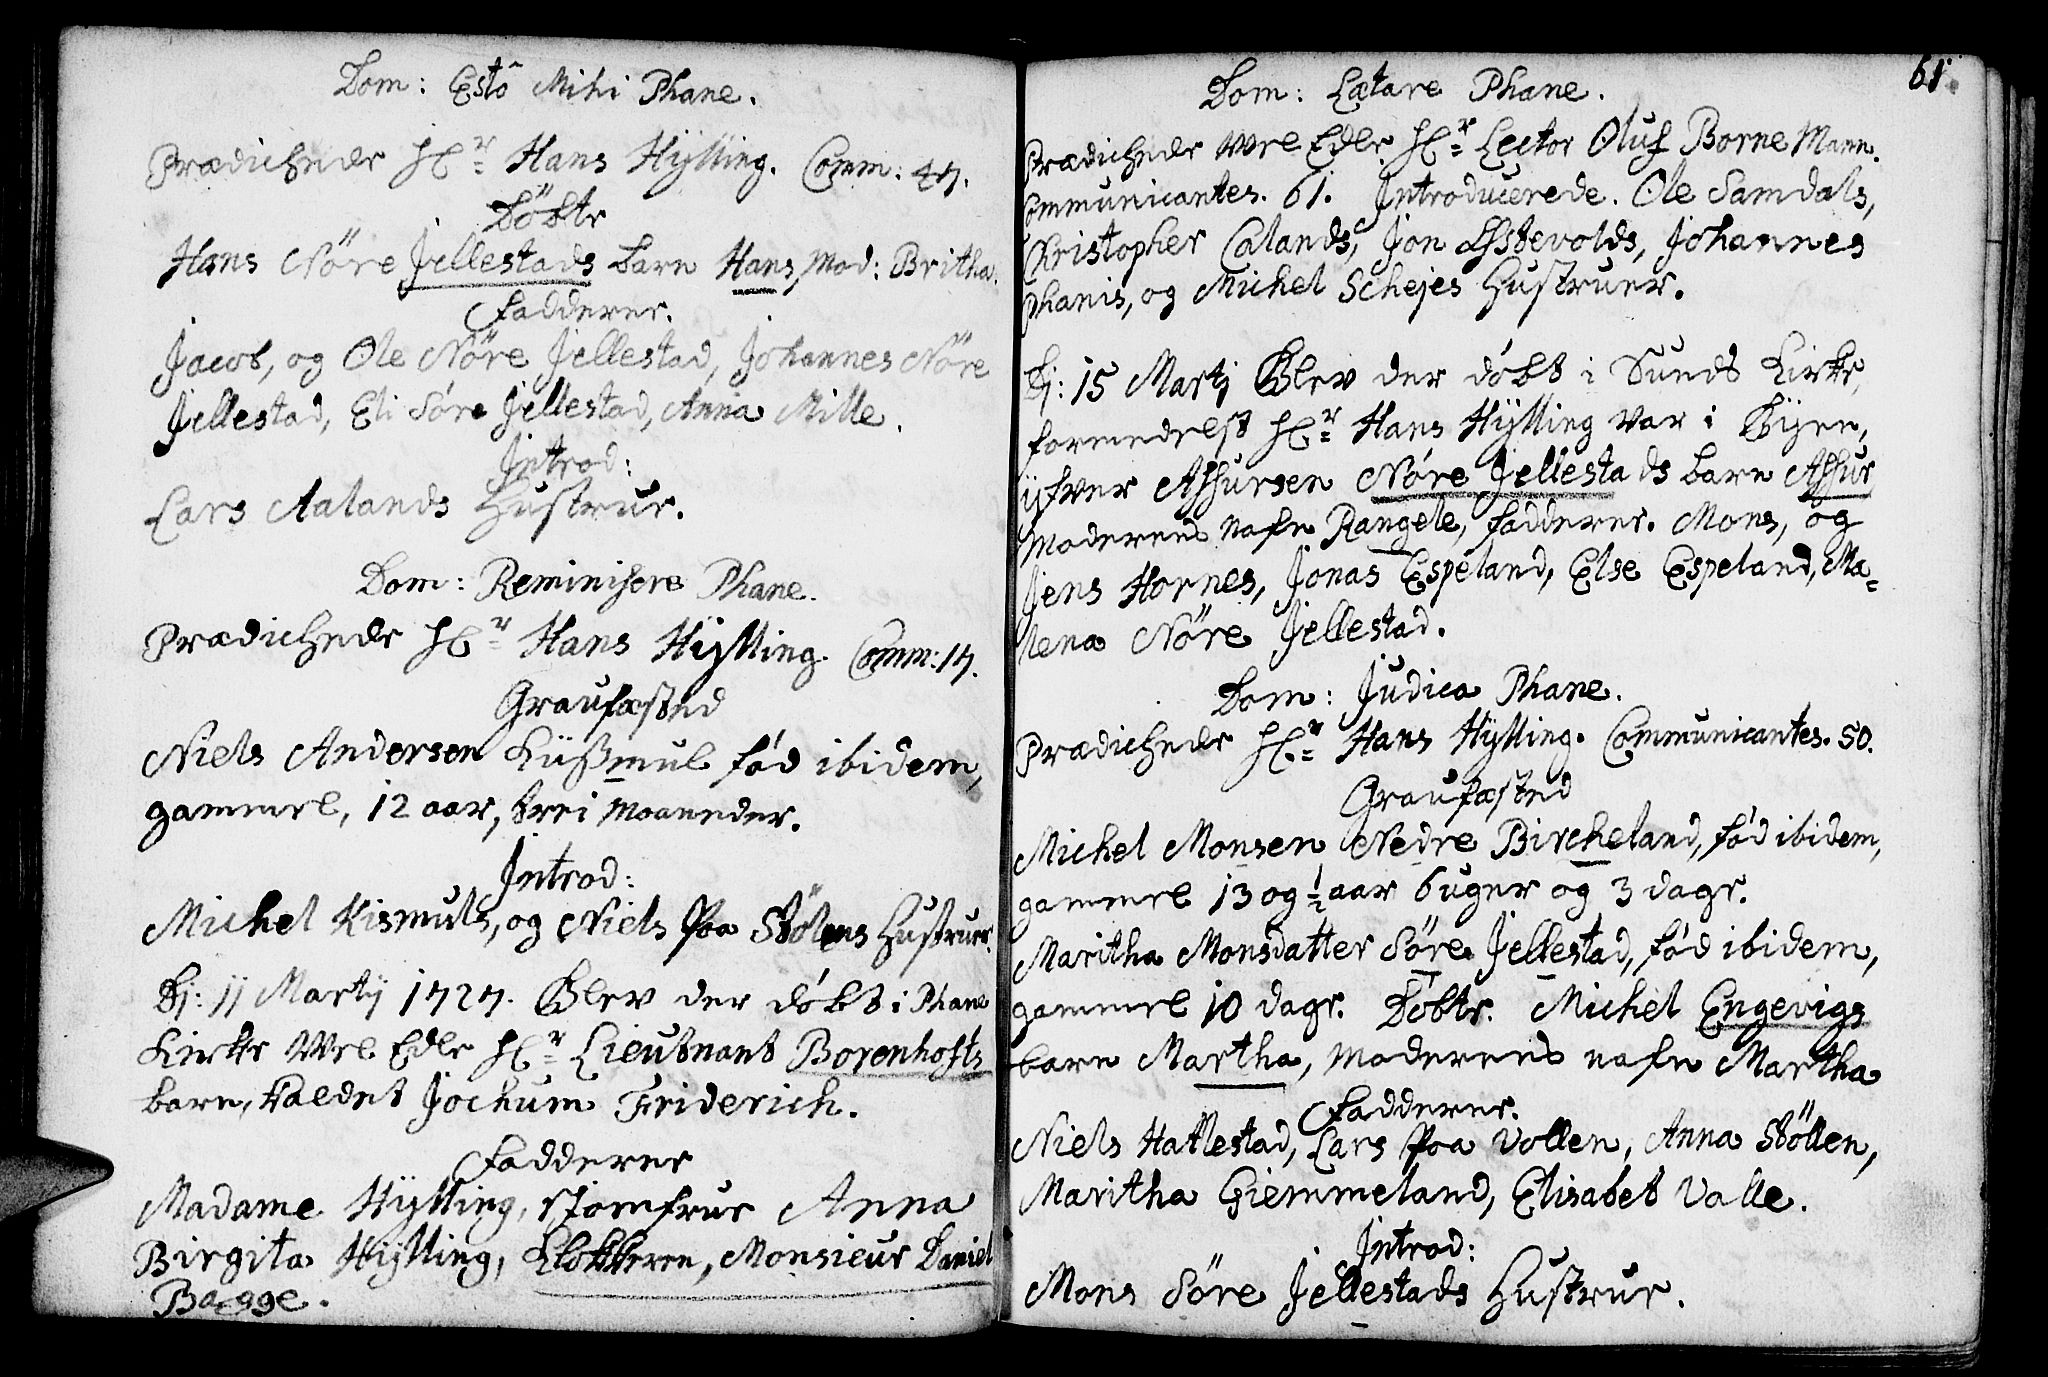 Dom: Estô Mihi Phane.
Prædichede Hr: Hans Hÿlling. Comm: 47.
Döbte
Hans Nöre Jellestads barn Hans, Mod: Britha.
Fadderer.
Jacob, og Ole Nöre Jellestad, Johannes Nöre
Jellestad, Eli Söre Jellestad, Anna Mille.
Introd:
Lars Aalands Hustrue.
Dom: Reminiscere Phane.
Prædichede Hr: Hans Hÿlling. Comm: 17.
Graufæsted
Niels Andersen Küßmul fód ibidem,
gammel, 12 aar, trei Maaneder.
Introd:
Michel Kismuls, og Niels Paa Stölens Hustruer.
Dj: 11 Martij 1727. Blev der döbt i Phane
Kirke Wel Edle Hr: Lieutnant Borenhofts
barn, kaldet Jochum Friderich.
Fadderer
Madame Hÿlling, Jomfrue Anna
Birgita Hÿlling, Klokkeren, Monsieur Daniel
Bagge.
61.
Dom: Lætare Phane.
Prædichede Wel Edle Hr: Lector Oluf Borne Mann.
Communicantes. 61. Introducerede. Ole Samdals,
Christopher Calands, Jon Jstevolds, Johannes
Phanis, og Michel Schejes Hustruer.
Dj: 15 Martj Blev der döbt i Sunds Kirke,
formedelst Hr: Hans Hÿlling var i Byen,
ifver Assursen Nöre Jellestads barn Assur
Moderens Nafn Rangele, fadderer. Mons, og
Jens Hornes, Jonas Espeland, Else Espeland, Ma-
lena Nöre Jellestad.
Dom: Judica Phane.
Prædichede Hr: Hans Hÿlling. Communicantes. 50.
Graufæsted
Michel Monsen Nedre Bircheland, fód ibidem,
gammel 13 og ½ aar 6 uger og 3 dage.
Maritha Monsdatter Söre Jellestad, fód ibidem,
gammel 10 dage. Döbte. Michel Engevigs
barn Martha, Moderens nafn Martha
Fadderer.
Niels Hatlestad, Lars Paa Vollen, Anna Stöllen,
Maritha Giemmeland, Elisabet Valle.
Introd:
Mons Söre Jellestads Hustrue.